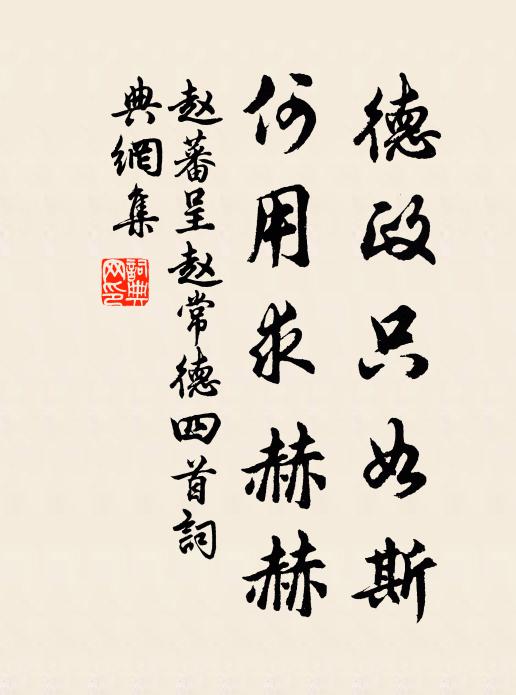 德政只如斯
何用求赫赫
赵蕃呈赵常德四首詞
典網集
詞典
网印